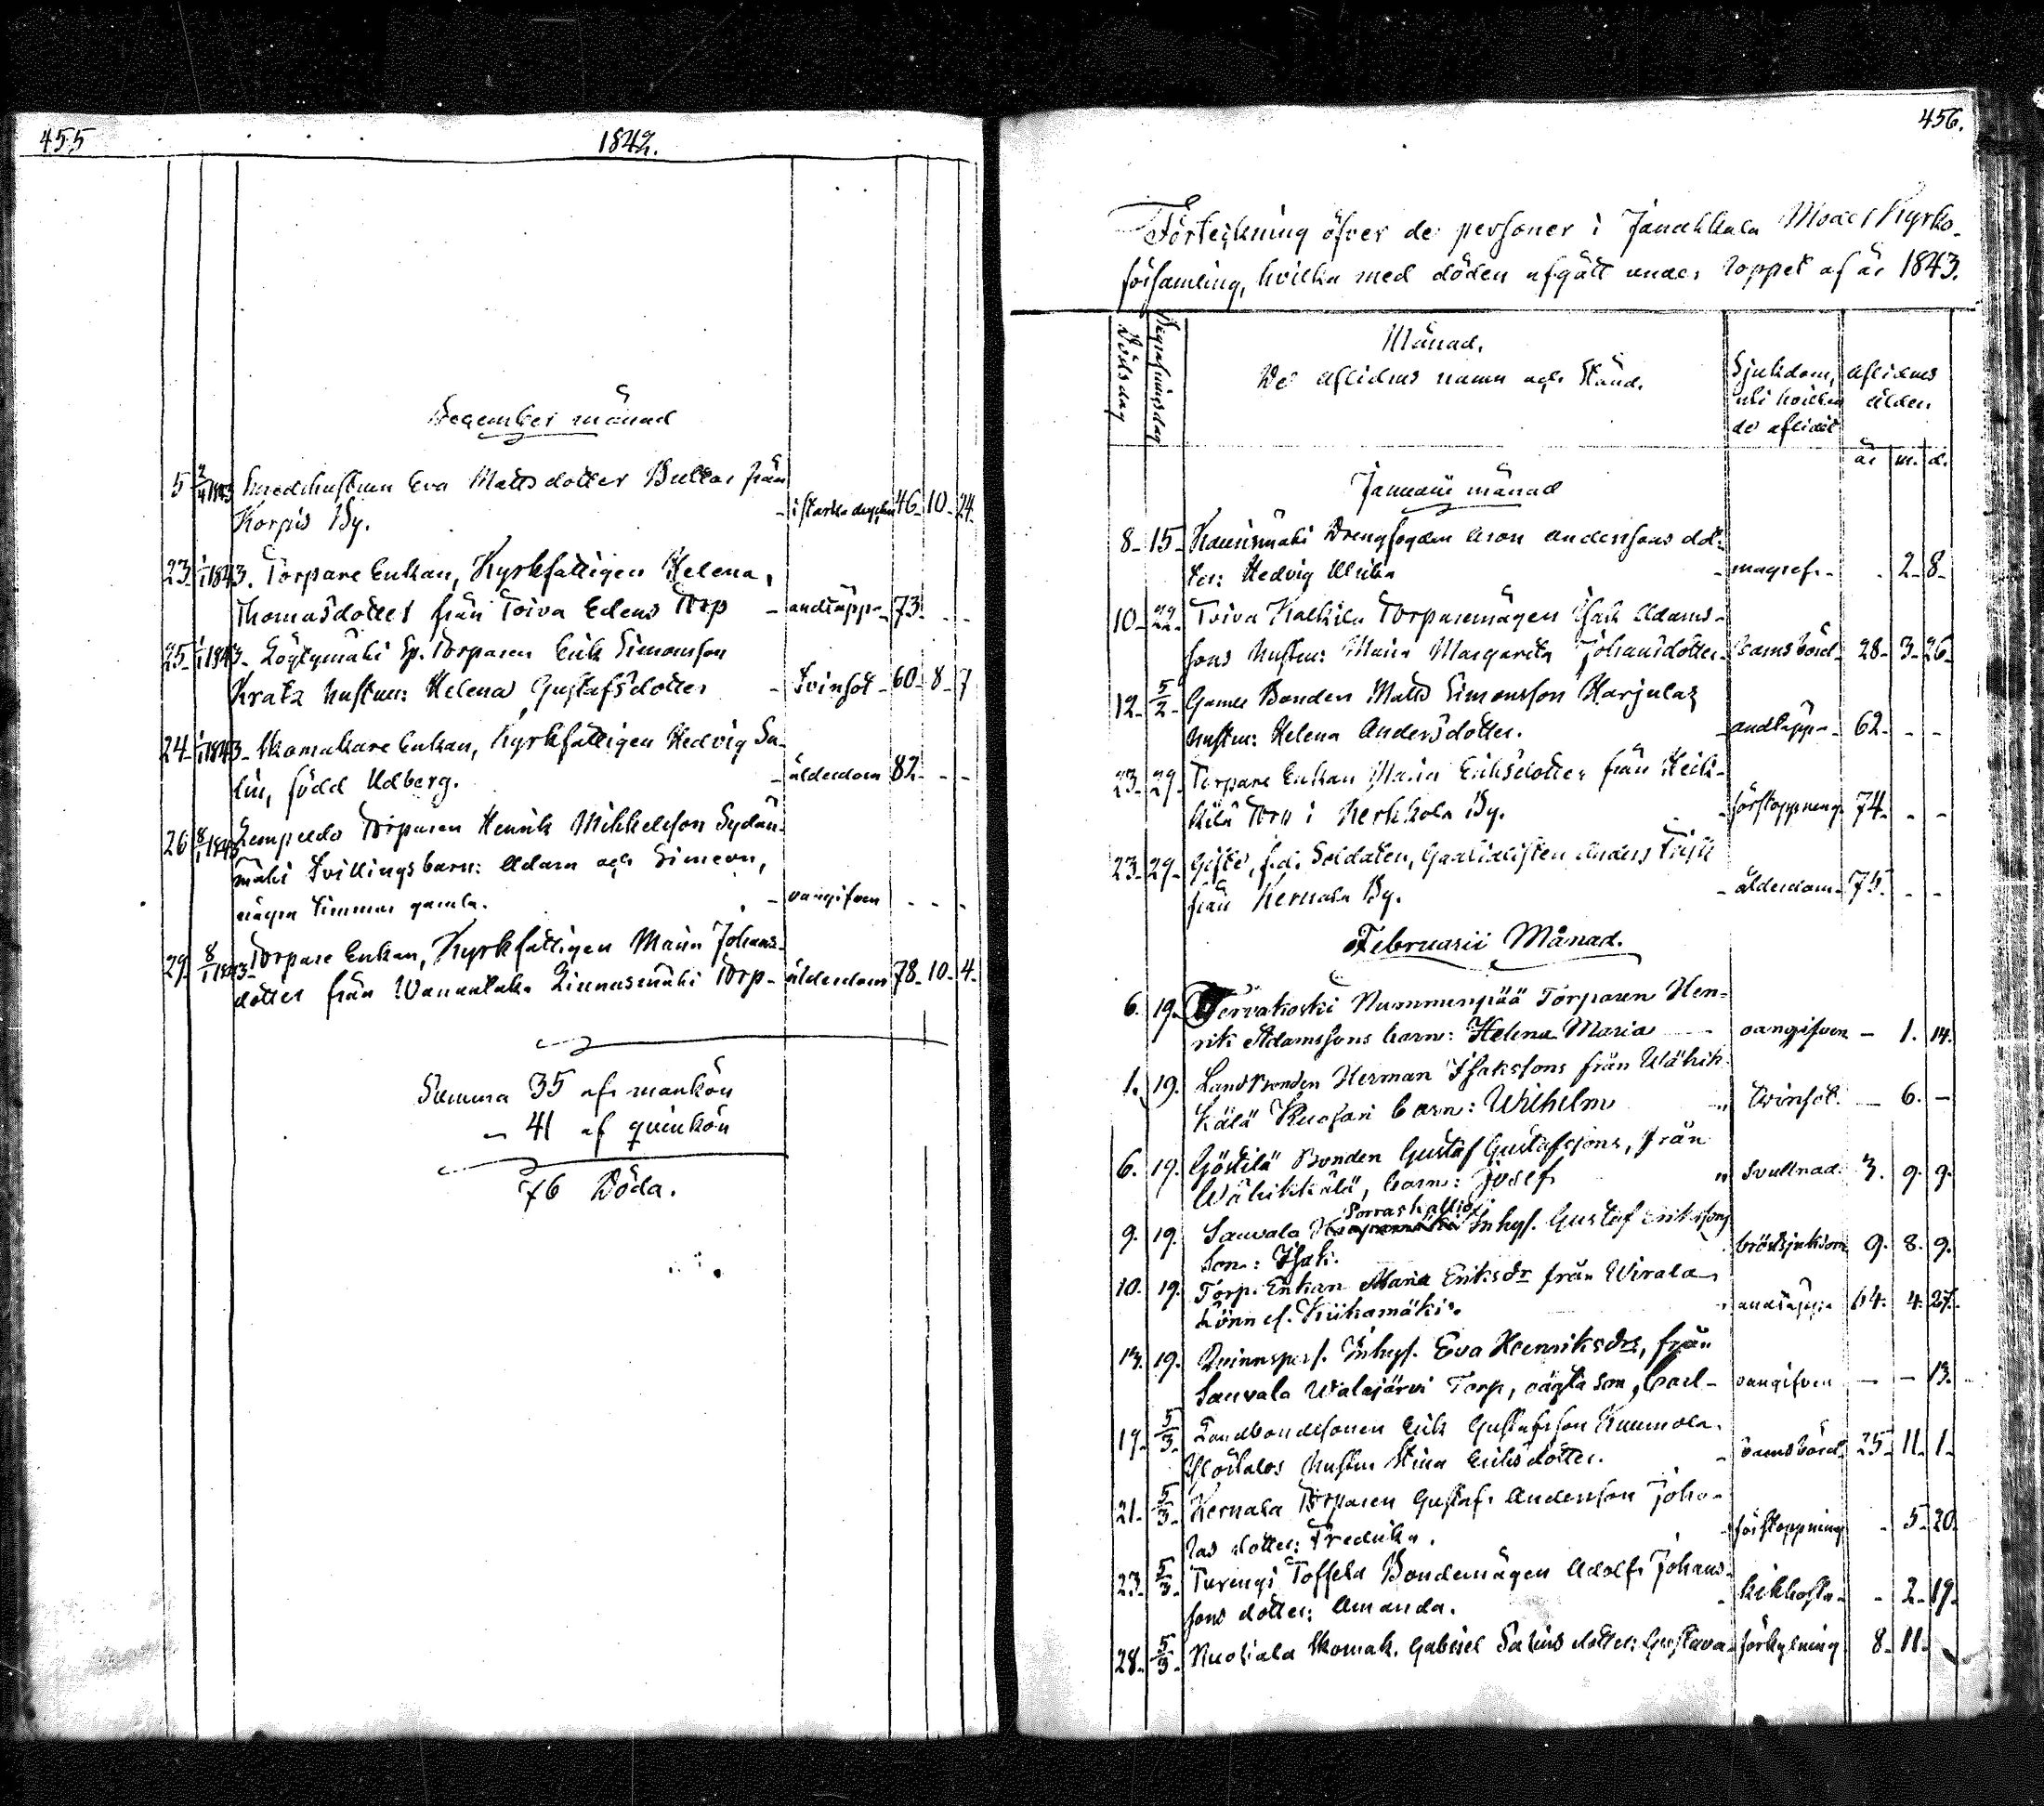 455
1842.
December månad
5 2/4 1843 Smedshustrun Eva Matts dotter Bultar från
Korpis By. - istarka drycker 46. 10. 24.
23. 1/1 1843. Torpare Enkan, Kyrkfattigen Helena,
Thomasdotter från Toiva Edens Torp - andtäppa 73. - -
25. 1/1 1843. Löyttymäki Sp. Torparen Erik Simonsson
Kratz hustru: Helena Gustafsdotter - tvinsot - 60 - 8 - 7
24. 1/1 1843. Skomakare Enkan, Kyrkfattigen Hedvig Sa-
lin, född Udberg. - ålderdom 82. - -
26 8/1 1843 Torparen Henrik Mikkelsson Sydän-
mäki tvillingsbarn: Adam och Simeon,
några timmar gamla. - oangifven - - -
29. 8/1 1843. Torpare Enkan, Kyrkfattigen Maria Johans-
dotter från Wanantaka Linnasmäki Torp - ålderdom 78. 10. 4.
Summa 35 af mankön
" 41 af quinkön
76 Döda.
456.
Förteckning öfver de personer i Janakkala Moder Kyrko-
församling, hvilka med döden afgått under loppet af år 1843.
Dödsdag
Begrafningsdag
Månad.
De aflidnes namn och stånd.
Sjukdom,
uti hvilken
de aflidit
aflidnes
ålder.
år m. d.
Januarii månad
8. 15. Drengfogden Aron Anderssons dot-
ter: Hedvig Ulrika - magref. - 2. 8.
10. 22. Toiva Kalkila Torparemågen Isak Adams-
sons hustru: Maria Margareta Johansdotter. Barnsbörd. 28. 3. 26.
12. 5/2. Gamle Bonden Matts Simonsson Harjulas
hustru: Helena Andersdotter. - andtäppa. 62. - -
23. 29. Torpare Enkan Maria Eriksdotter från Heik-
kilä Torp i Kerkkola By. - förstoppning. 74. - -
23. 29. Gifte, f.d. Soldaten, Gratialisten Anders Frisk
från Kernala By. - ålderdom. 75. - -
Februarii Månad.
6. 19. Tervakoski Nummenpää Torparen Hen-
rik Adamssons barn: Helena Maria - oangifven - 1. 14.
1. 19. Landbonden Herman Isakssons från Wähik-
kälä Ruosari barn: Wilhelm " tvinsot. - 6. -
6. 19. Göstilä Bonden Gustaf Gustafssons, från
Wähikkälä, barn: Josef " Svullnad. 3. 9. 9.
Porraskallio
9. 19. Sauvala Inhys. Gustaf Erikssons
Son: Isak. bröstsjukdom 9. 8. 9.
10. 19. Torp. Enkan Maria Eriksdr från Wirala
Lönn ell. Kiikamäki. " andtäppa 64. 4. 27.
13. 19. Qvinnspers. Inhys. Eva Henriksdr, från
Sauvala Walajärvi Torp, oägta son, Carl - oangifven - - 13.
19. 5/3. Landbondesonen Erik Gustafsson Kuumola
Ylöstalos hustru Stina Eriksdotter. - barnsbörd. 25. 11. 1.
21. 5/3. Kernala Torparen Gustaf Andersson Joho-
las dotter: Fredrika. - förstoppning - 5. 20.
23. 5/3. Turengi Toffela Bondemågen Adolf Johans-
sons dotter: Amanda. - kikhosta - 2. 19.
28. 5/3. Skomak. Gabriel Salins dotter: Gustava. förkylning 8. 11. -